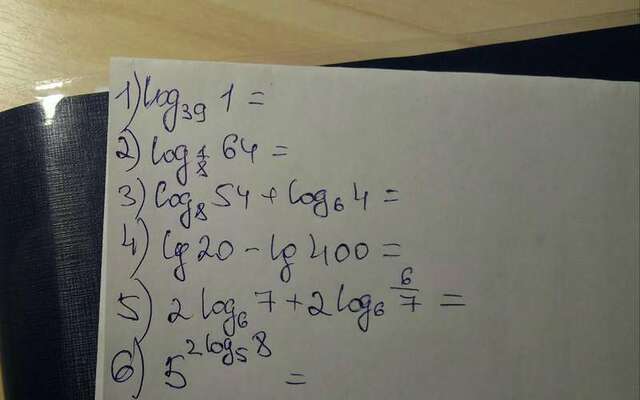 1) log₃₉ 1 =
2) log_{1/8} 64 =
3) log₈ 54 + log₆ 4 =
4) lg 20 - lg 400 =
5) 2 log₆ 7 + 2 log₆ 6/7 =
6) 5^{2 log₅ 8} =